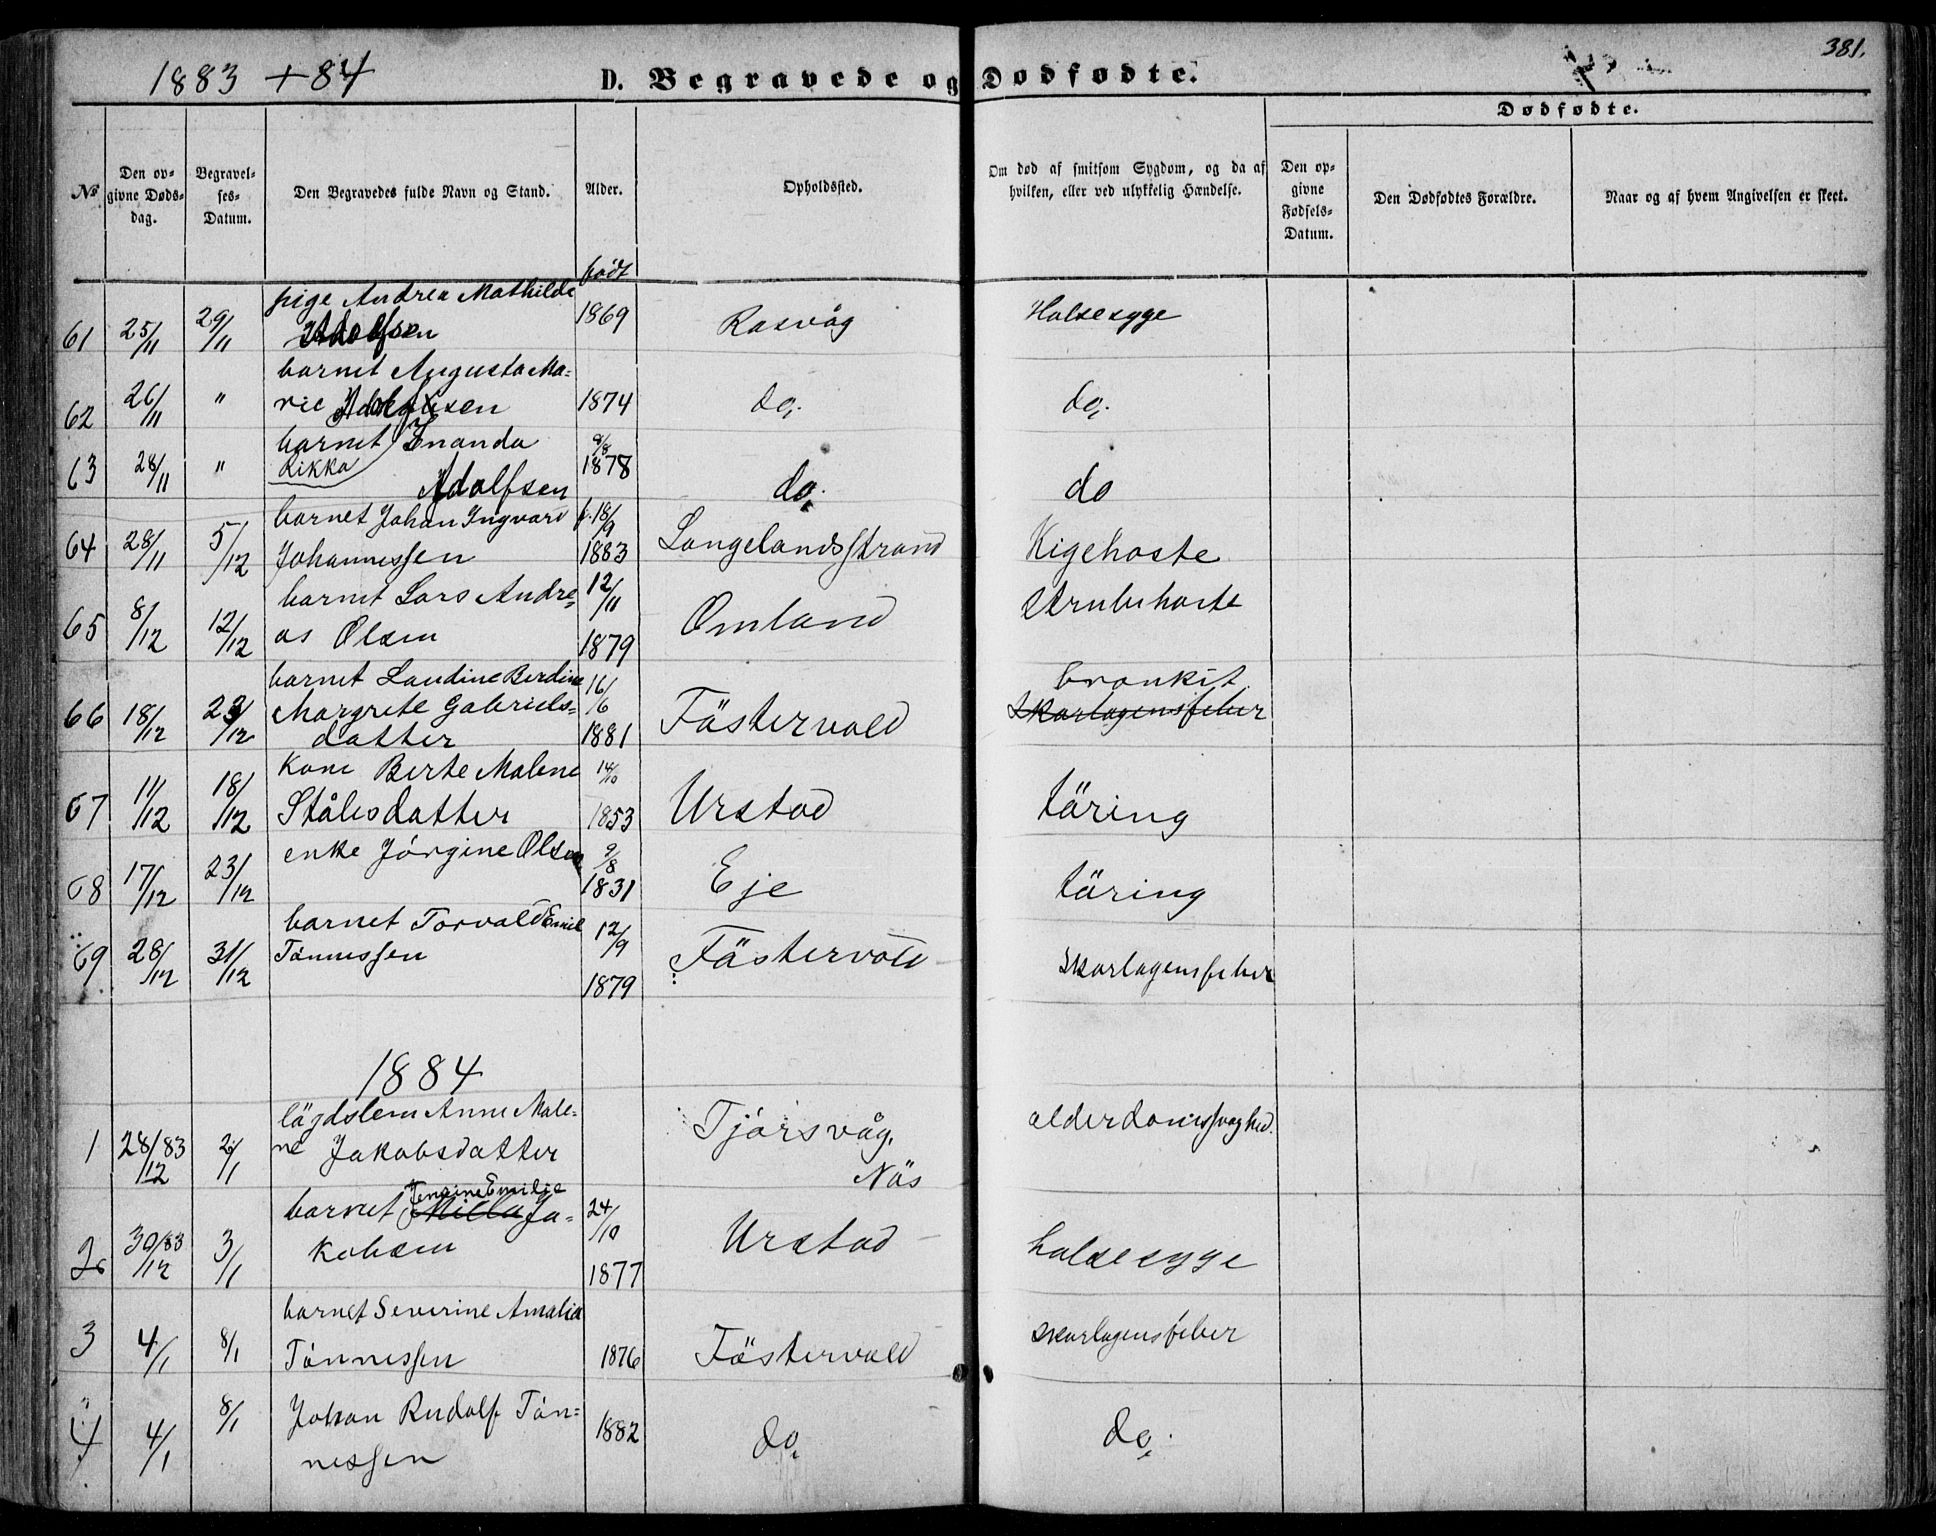 1883 + 84
D. Begravede og Dødfødte.
381.
Dødfødte.
№
Den opgivne Døds-dag.
Begravel-ses-Datum.
Den Begravedes fulde Navn og Stand.
Alder.
Opholdssted.
Om død af smitsom Sygdom, og da af hvilken, eller ved ulykkelig Hændelse.
Den op-givne Fødsels-Datum.
Den Dødfødtes Forældre.
Naar og af hvem Angivelsen er skeet.
født
61 25/11 29/11 pige Andrea Mathilde 1869 Rasvåg Halsesyge
Adolfsen
62 26/11 " barnet Augusta Ma= 1874 do. do.
rie Adolfsen
63 28/11 " barnet Enanda 9/8 1878 do. do
Rikka
Adolfsen
64 28/11 5/12 barnet Johan Ingvard f. 18/9 1883 Langelandsstrand Kigehoste
Johannessen
65 8/12 12/12 barnet Lars Andre= 12/11 1879 Omland Strubehoste
as Olsen
66 18/12 23/12 barnet Laudine Berdine 16/6 1881 Fästervold bronkit.
Margrete Gabriels= Skarlagensfeber
datter
67 11/12 18/12 Kone Berte Malene 14/10 1853 Urstad täring
Ståhlesdatter
68 17/12 23/12 enke Jörgine Olsen 9/8 1831 Eje täring
69 28/12 31/12 barnet Torvald Emil 12/9 1879 Fästervold skarlagensfeber
Tönnessen
1884
1 28/12 83 2/1 lägdslem Anne Male= Tjörsvåg, alderdomssvaghed.
ne Jakobsdatter Näs
2 30/12 83 3/1 barnet Jensine Emilie Milla Ja= 24/10 1877 Urstad halsesyge
kobsen
3 4/1 8/1 barnet Severine Amalia 1876 Fästervold skarlagensfeber
Tönnessen
4 4/1 8/1 Johan Rudolf Tön= 1882 do. do.
nessen